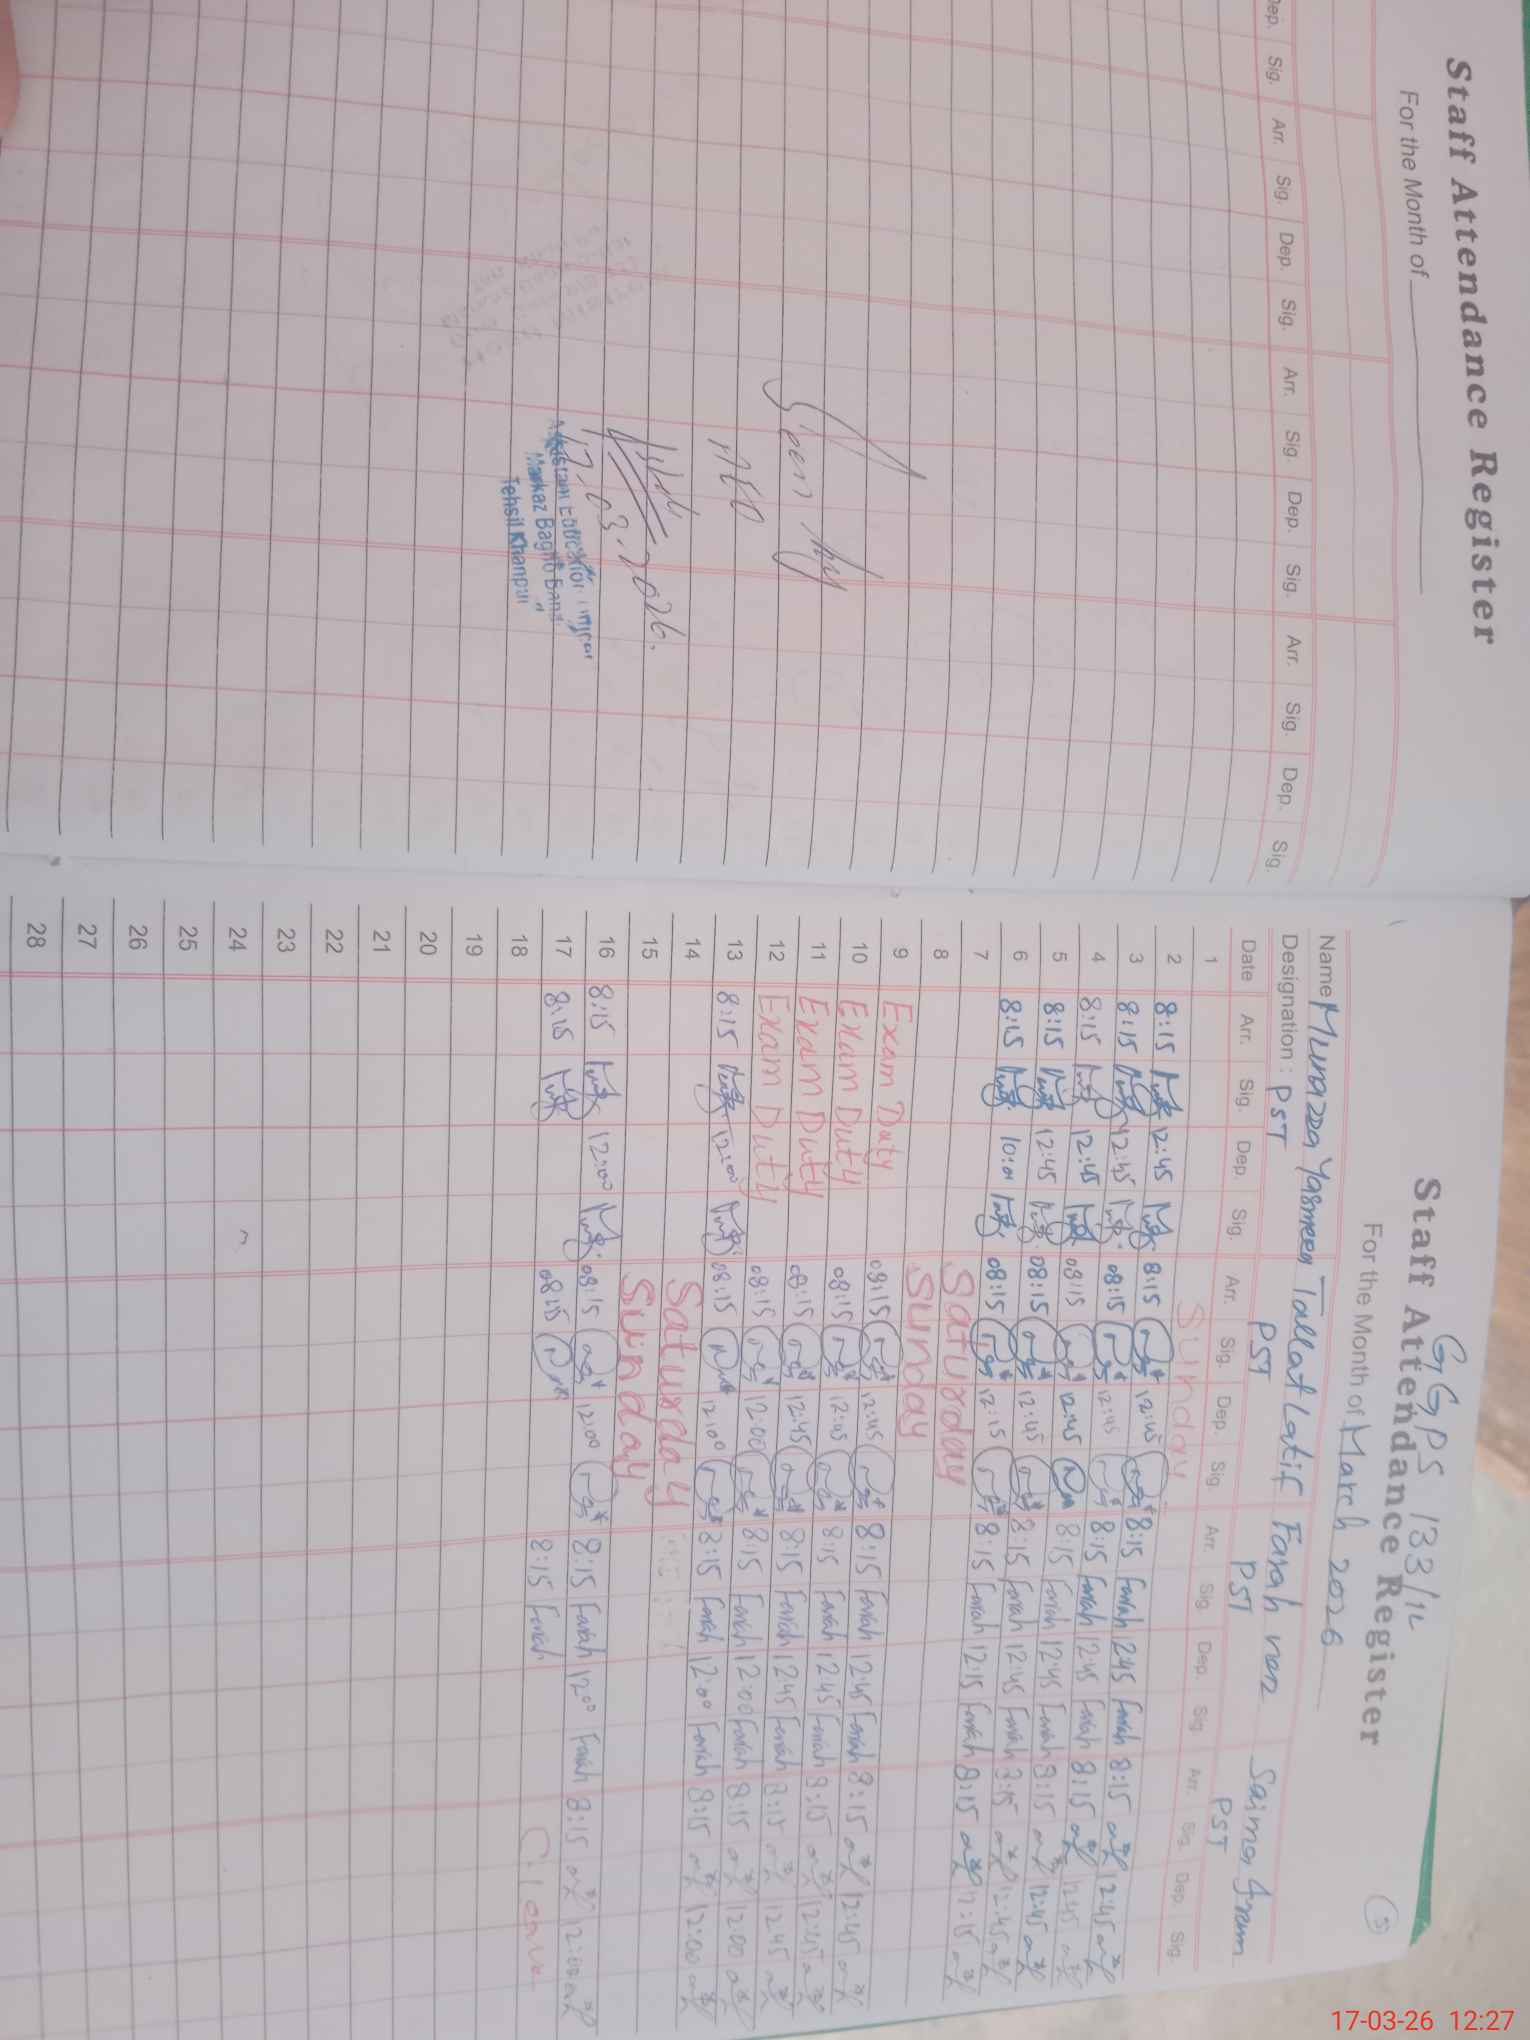 Staff Attendance Register
For the Month of
Dep. Sig. Arr. Sig. Dep. Sig. Arr. Sig. Dep. Sig. Arr. Sig. Dep. Sig.
Seen by
AEO
17.03.2026.
Markaz Bagho Bahar
Tehsil Khanpur
GGPS 133/1L
Staff Attendance Register
For the Month of March 2026
Name Munazza Yasmeen Tallat Latif Farah naz Saima Iram
Designation : PST PST PST PST
Date Arr. Sig. Dep. Sig. Arr. Sig. Dep. Sig. Arr. Sig. Dep. Sig. Arr. Sig. Dep. Sig.
1 Sunday
2 8:15 12:45 8:15 12:45 8:15 Farah 2:45 Farah 8:15 12:45
3 8:15 12:45 08:15 12:45 8:15 Farah 12:45 Farah 8:15 12:45
4 8:15 12:45 08:15 12:45 8:15 Farah 12:45 Farah 8:15 12:45
5 8:15 12:45 08:15 12:45 8:15 Farah 12:45 Farah 8:15 12:45
6 8:15 10:01 08:15 12:15 8:15 Farah 12:15 Farah 8:15 12:15
7 Saturday
8 Sunday
9 Exam Duty 08:15 12:45 8:15 Farah 12:45 Farah 8:15 12:45
10 Exam Duty 08:15 12:45 8:15 Farah 12:45 Farah 8:15 12:45
11 Exam Duty 08:15 12:45 8:15 Farah 12:45 Farah 8:15 12:45
12 Exam Duty 08:15 12:00 8:15 Farah 12:00 Farah 8:15 12:00
13 8:15 12:00 08:15 12:00 8:15 Farah 12:00 Farah 8:15 12:00
14 Saturday
15 Sunday
16 8:15 12:00 08:15 12:00 8:15 Farah 1200 Farah 8:15 12:00
17 8:15 08:15 8:15 Farah C. leave
18
19
20
21
22
23
24
25
26
27
28
17-03-26 12:27